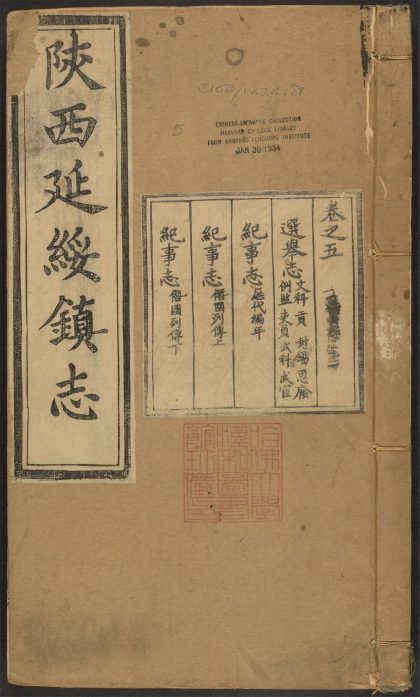 陝西延綏鎮志
3162/1424.81
5
CHINESE-JAPANESE COLLECTION
HARVARD COLLEGE LIBRARY
FROM HARVARD YENCHING INSTITUTE
JAN 30 1934
卷之五
選舉志 文科 貢 封錫 恩廕
例監 吏員 武科 武官
紀事志 歷代編年
紀事志 僭國列傳上
紀事志 僭國列傳下
哈佛大學
漢和圖書
館珍藏印